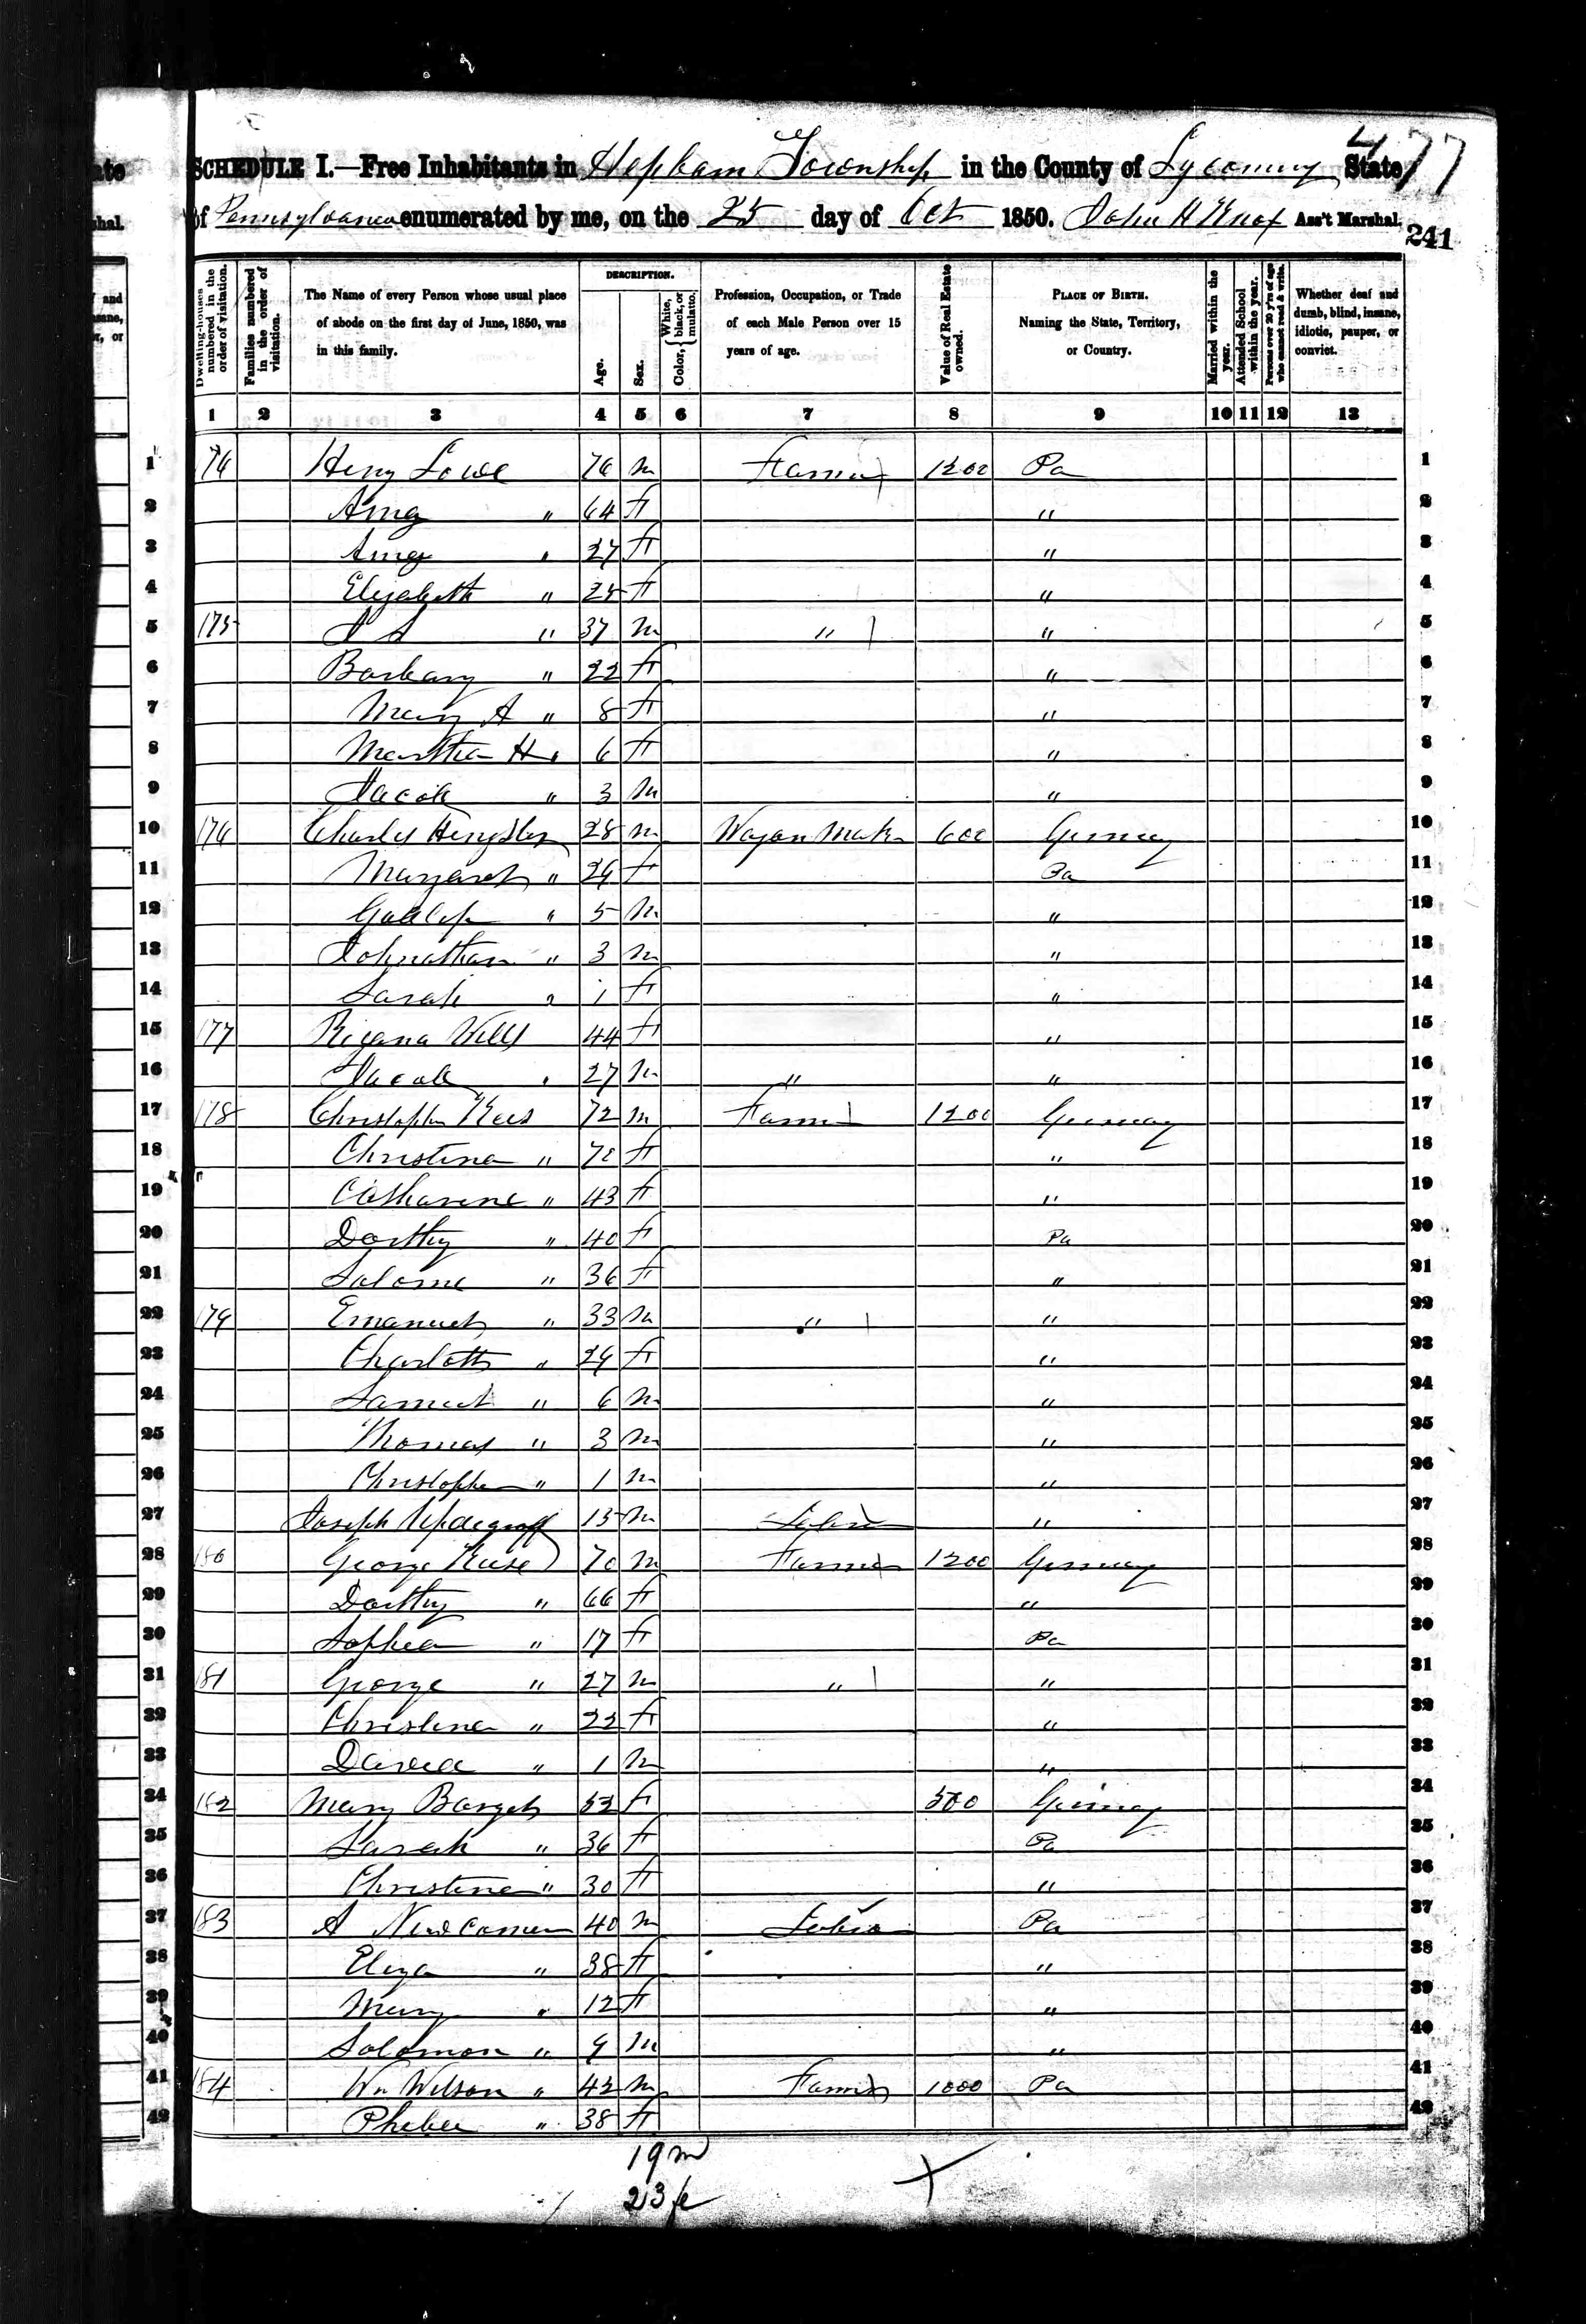 477
SCHEDULE I.—Free Inhabitants in Hepburn Township in the County of Lycoming State
of Pennsylvania enumerated by me, on the 25 day of Oct 1850. John H Knox Ass't Marshal.
241
Dwelling-houses numbered in the order of visitation.
Families numbered in the order of visitation.
The Name of every Person whose usual place of abode on the first day of June, 1850, was in this family.
DESCRIPTION.
Age.
Sex.
Color, { White, black, or mulatto.
Profession, Occupation, or Trade of each Male Person over 15 years of age.
Value of Real Estate owned.
PLACE OF BIRTH. Naming the State, Territory, or Country.
Married within the year.
Attended School within the year.
Persons over 20 y'rs of age who cannot read & write.
Whether deaf and dumb, blind, insane, idiotic, pauper, or convict.
1 2 3 4 5 6 7 8 9 10 11 12 13
1 174 Henry Lowe 76 m Farmer 1200 Pa 1
2 Amy " 64 f " 2
3 Amy " 27 f " 3
4 Elizabeth " 25 f " 4
5 175 J S " 37 m " " 5
6 Barbary " 22 f " 6
7 Mary A " 8 f " 7
8 Martha H " 6 f " 8
9 Jacob " 3 m " 9
10 176 Charles 28 m Wagon Maker 600 Germany 10
11 Margaret " 29 f Pa 11
12 " 5 m " 12
13 Johnathan " 3 m " 13
14 Sarah " 1 f " 14
15 177 44 f " 15
16 Jacob " 27 m " " 16
17 178 Christopher 72 m Farmer 1200 Germany 17
18 Christina " 70 f " 18
19 " Catharine " 43 f " 19
20 Dorthy " 40 f Pa 20
21 Salome " 36 f " 21
22 179 Emanuel " 33 m " " 22
23 Charlotte " 29 f " 23
24 Samuel " 6 m " 24
25 Thomas " 3 m " 25
26 Christopher " 1 m " 26
27 Joseph Updegraff 15 m Labor " 27
28 180 George 70 m Farmer 1200 Germany 28
29 Dorthy " 66 f " 29
30 Sophia " 17 f Pa 30
31 181 George " 27 m " " 31
32 Christina " 22 f " 32
33 David " 1 m " 33
34 182 Mary 52 f 500 Germany 34
35 Sarah " 36 f Pa 35
36 Christina " 30 f " 36
37 183 A Newcomer 40 m Labor Pa 37
38 Eliza " 38 f " 38
39 Mary " 12 f " 39
40 Solomon " 9 m " 40
41 184 Wm Wilson " 42 m Farmer 1000 Pa 41
42 Phebee " 38 f 42
19 m
23 fe